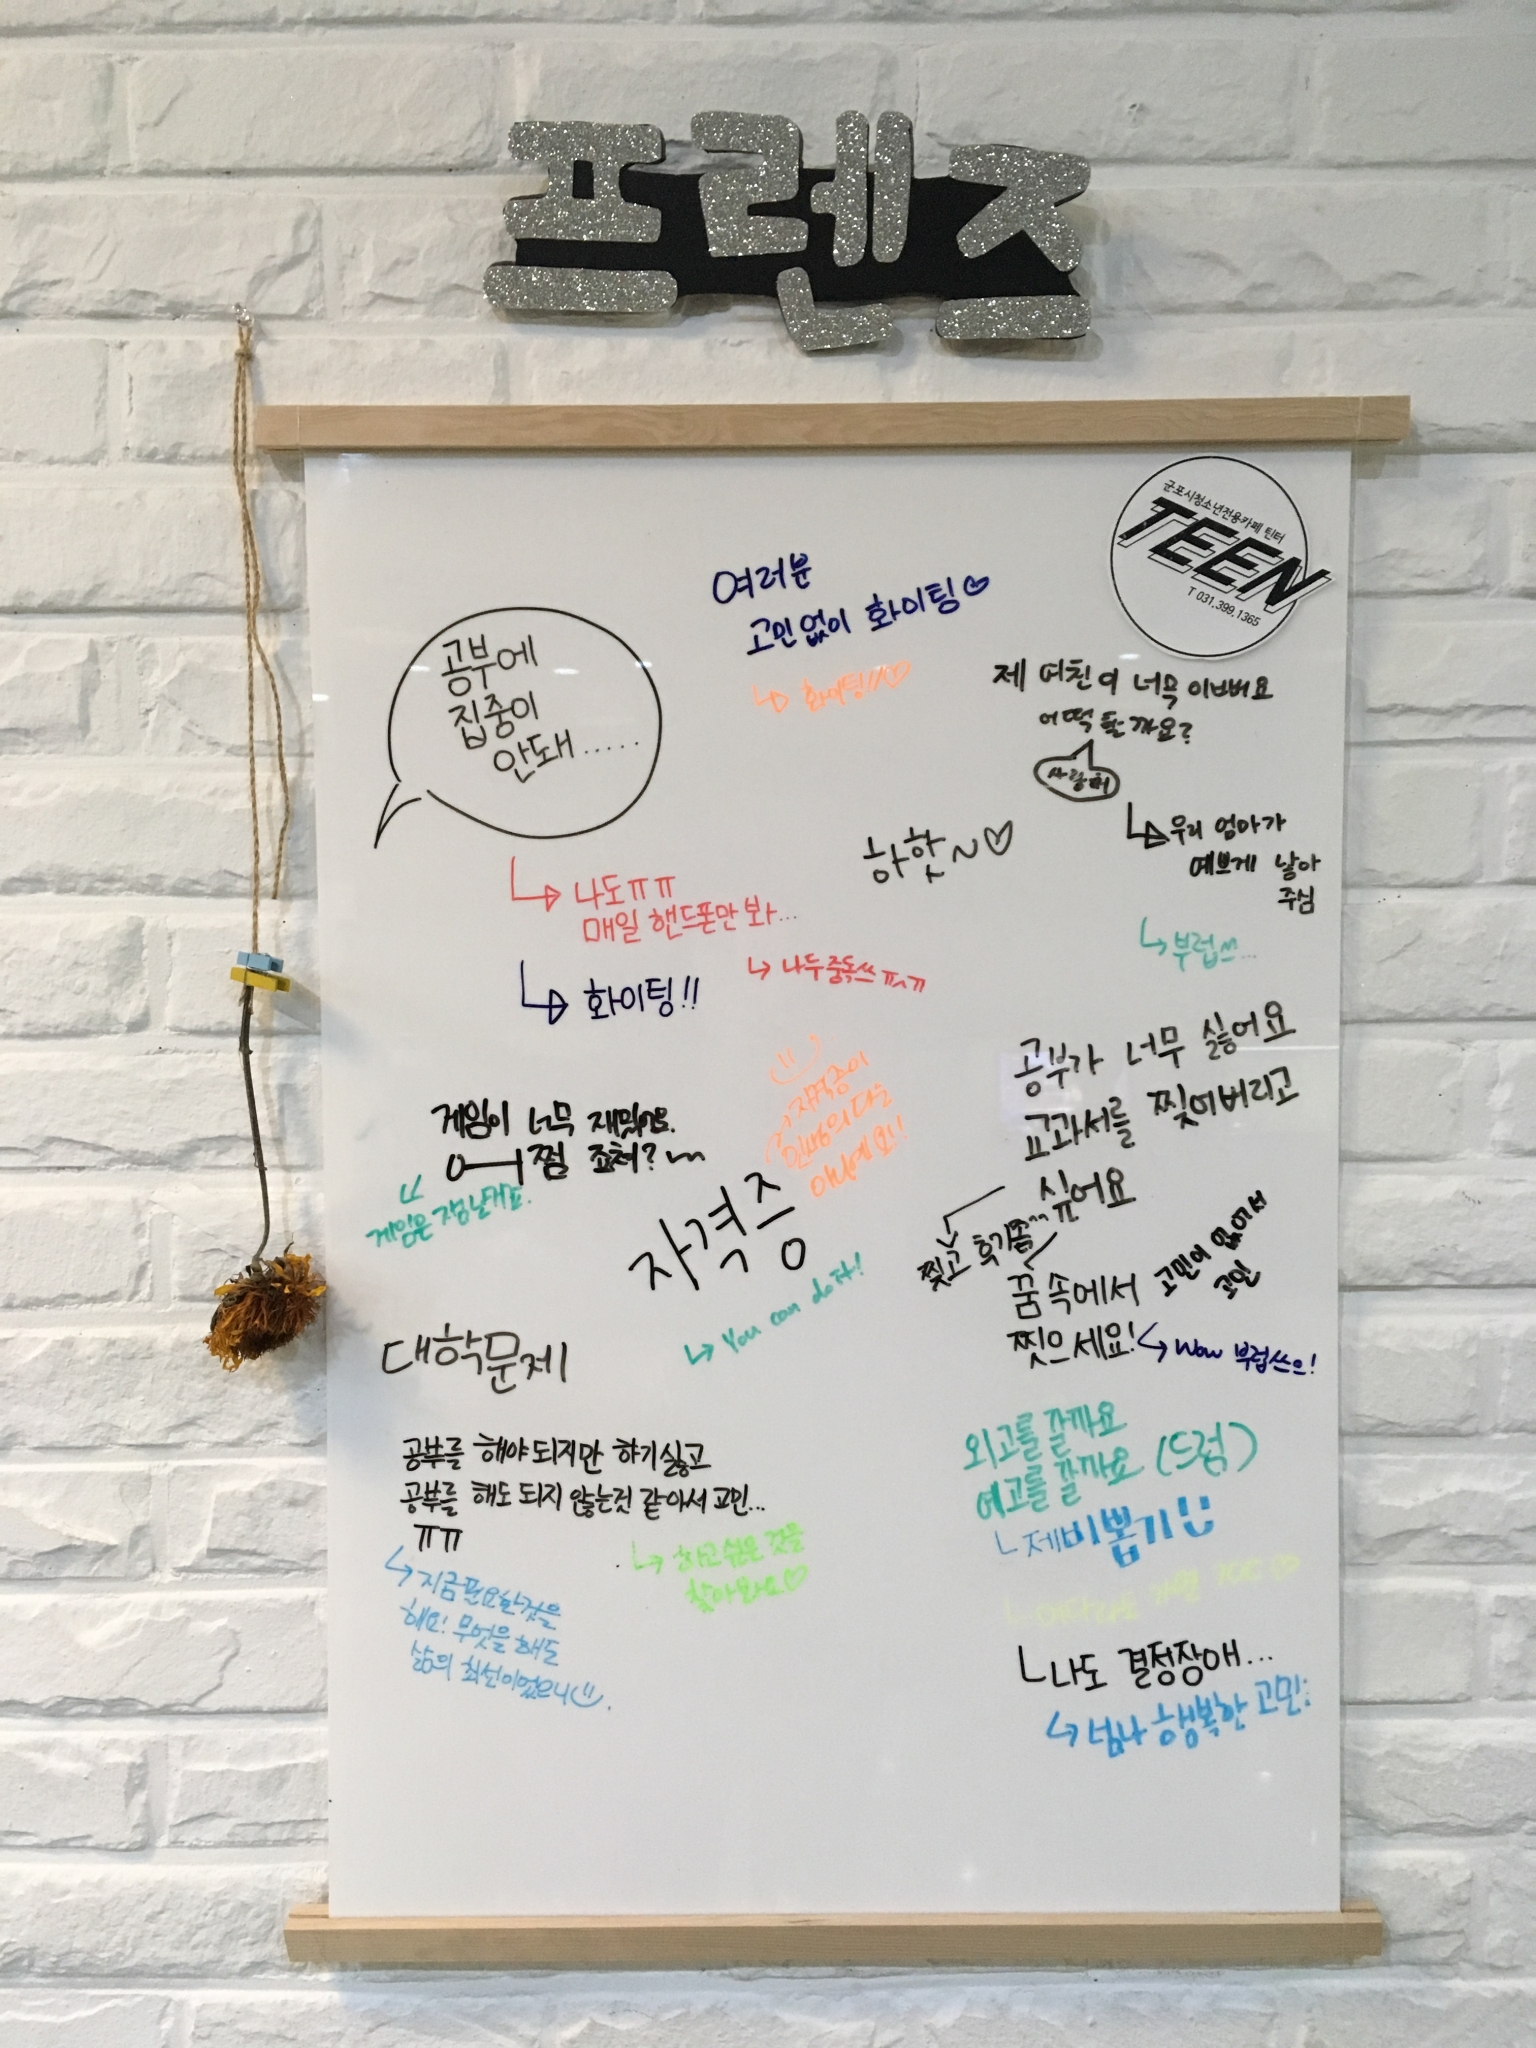 프렌즈
군포시청소년전용카페 틴터
TEEN
T 031.399.1365
여러분
고민없이 화이팅♡
↳ 화이팅!!♡
공부에
집중이
안돼.....
↳ 나도ㅠㅠ
매일 핸드폰만 봐...
↳ 나두중독쓰ㅠㅠ
↳ 화이팅!!
제 여친이 너무 이뻐요
어떡할까요?
사랑해
↳ 우리 엄마가
예쁘게 낳아
주심
↳ 부럽쓰...
하핫~♡
공부가 너무 싫어요
교과서를 찢어버리고
싶어요
찢고 후기좀^^
꿈속에서
찢으세요!
고민이 없어서
고민
↳ Wow 부럽쓰으!
게임이 너무 재밌어요.
쩔 죠쳐?
게임은 쟁날거표.
자격증
자격증이
인생의 다는
아니에요!!
↳ You can do it!
대학문제
공부를 해야 되지만 하기싫고
공부를 해도 되지 않는것 같아서 고민...
ㅠㅠ
↳ 지금 필요한것을
해요! 무엇을 해도
삶의 최선이었으니
↳ 하고 싶은 것을
찾아봐요♡
외고를 갈까요
예고를 갈까요 (드럼)
ㄴ제비뽑기
ㄴ나도 결정장애...
↳ 넘나 행복한 고민: